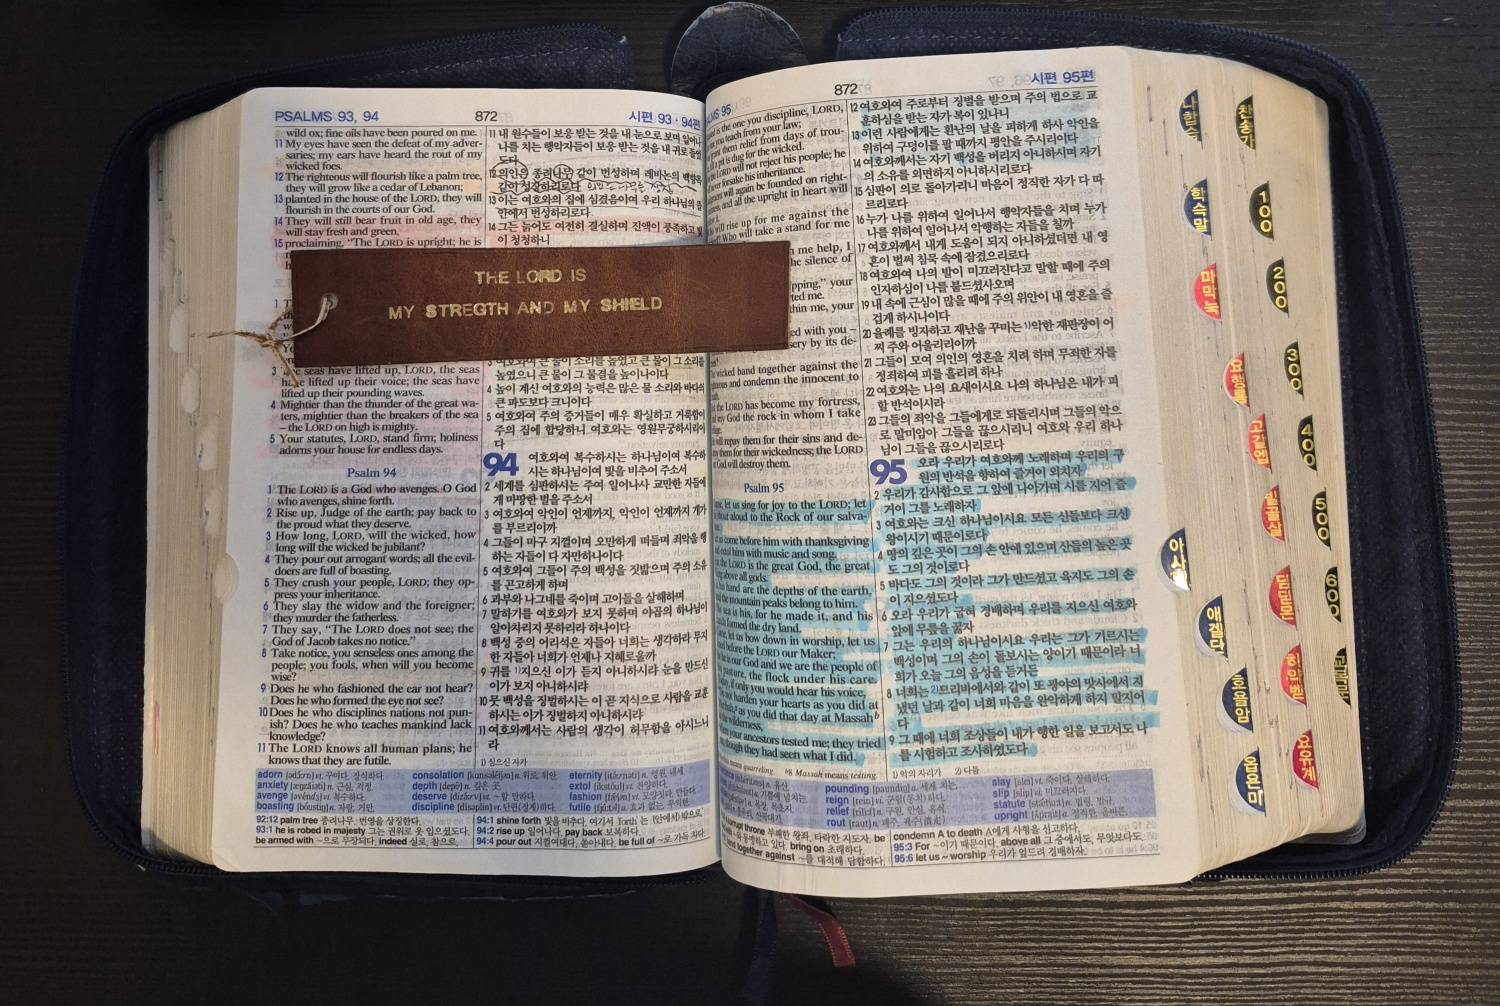 PSALMS 93, 94
872
시편 93 · 94편
wild ox; fine oils have been poured on me.
11 My eyes have seen the defeat of my adver-
saries; my ears have heard the rout of my
wicked foes.
12 The righteous will flourish like a palm tree,
they will grow like a cedar of Lebanon;
13 planted in the house of the LORD, they will
flourish in the courts of our God.
14 They will still bear fruit in old age, they
will stay fresh and green,
15 proclaiming, "The LORD is upright; he is
THE LORD IS
MY STREGTH AND MY SHIELD
3 The seas have lifted up, LORD, the seas
have lifted up their voice; the seas have
lifted up their pounding waves.
4 Mightier than the thunder of the great wa-
ters, mightier than the breakers of the sea
– the LORD on high is mighty.
5 Your statutes, LORD, stand firm; holiness
adorns your house for endless days.
Psalm 94
1 The LORD is a God who avenges. O God
who avenges, shine forth.
2 Rise up, Judge of the earth; pay back to
the proud what they deserve.
3 How long, LORD, will the wicked, how
long will the wicked be jubilant?
4 They pour out arrogant words; all the evil-
doers are full of boasting.
5 They crush your people, LORD; they op-
press your inheritance.
6 They slay the widow and the foreigner;
they murder the fatherless.
7 They say, "The LORD does not see; the
God of Jacob takes no notice."
8 Take notice, you senseless ones among the
people; you fools, when will you become
wise?
9 Does he who fashioned the ear not hear?
Does he who formed the eye not see?
10 Does he who disciplines nations not pun-
ish? Does he who teaches mankind lack
knowledge?
11 The LORD knows all human plans; he
knows that they are futile.
11 내 원수들이 보응 받는 것을 내 눈으로 보며 일어나
나를 치는 행악자들이 보응 받는 것을 내 귀로 들었
도다
12 의인은 종려나무 같이 번성하며 레바논의 백향목
같이 성장하리로다
13 이는 여호와의 집에 심겼음이여 우리 하나님의 뜰
안에서 번성하리로다
14 그는 늙어도 여전히 결실하며 진액이 풍족하고 빛
이 청청하니
3 여호와여 큰 물이 소리를 높였고 큰 물이 그 소리를
높였으니 큰 물이 그 물결을 높이나이다
4 높이 계신 여호와의 능력은 많은 물 소리와 바다의
큰 파도보다 크니이다
5 여호와여 주의 증거들이 매우 확실하고 거룩함이
주의 집에 합당하니 여호와는 영원무궁하시리이
다
94 여호와여 복수하시는 하나님이여 복수하
시는 하나님이여 빛을 비추어 주소서
2 세계를 심판하시는 주여 일어나사 교만한 자들에
게 마땅한 벌을 주소서
3 여호와여 악인이 언제까지, 악인이 언제까지 개가
를 부르리이까
4 그들이 마구 지껄이며 오만하게 떠들며 죄악을 행
하는 자들이 다 자만하나이다
5 여호와여 그들이 주의 백성을 짓밟으며 주의 소유
를 곤고하게 하며
6 과부와 나그네를 죽이며 고아들을 살해하며
7 말하기를 여호와가 보지 못하며 야곱의 하나님이
알아차리지 못하리라 하나이다
8 백성 중의 어리석은 자들아 너희는 생각하라 무지
한 자들아 너희가 언제나 지혜로울까
9 귀를 1)지으신 이가 듣지 아니하시랴 눈을 만드신
이가 보지 아니하시랴
10 뭇 백성을 징벌하시는 이 곧 지식으로 사람을 교훈
하시는 이가 징벌하지 아니하시랴
11 여호와께서는 사람의 생각이 허무함을 아시느니
라
1) 심으신 자가
adorn vt. 꾸미다, 장식하다.
anxiety n. 근심, 걱정
avenge vt. 복수하다.
boasting n. 자랑, 거만
consolation n. 위로, 위안
depth n. 깊은 곳
deserve vt. ~할 만하다.
discipline vt. 단련(징계)하다.
eternity n. 영원, 내세
extol vt. 찬양하다.
fashion vt. 모양짓다, 만들다.
futile a. 효과 없는, 무익한
92:12 palm tree 종려나무, 번영을 상징한다.
93:1 he is robed in majesty 그는 권위로 옷 입으셨도다.
be armed with ~으로 무장되다. indeed 실로, 참으로.
94:1 shine forth 빛을 비추다.
94:2 rise up 일어나다. pay back 보복하다.
94:4 pour out 지껄여대다, 쏟아내다. be full of ~로 가득 차다.
872
시편 95편
is the one you discipline, LORD,
you teach from your law;
them relief from days of trou-
pit is dug for the wicked.
LORD will not reject his people; he
never forsake his inheritance.
will again be founded on right-
and all the upright in heart will
will rise up for me against the
Who will take a stand for me
me help, I
he silence of
your
ted me.
thin me, your
ed with you –
sery by its de-
wicked band together against the
and condemn the innocent to
the LORD has become my fortress,
my God the rock in whom I take
will repay them for their sins and de-
them for their wickedness; the LORD
our God will destroy them.
Psalm 95
let us sing for joy to the LORD; let
shout aloud to the Rock of our salva-
us come before him with thanksgiving
and extol him with music and song.
the LORD is the great God, the great
King above all gods.
his hand are the depths of the earth,
the mountain peaks belong to him.
sea is his, for he made it, and his
hands formed the dry land.
let us bow down in worship, let us
kneel before the LORD our Maker;
he is our God and we are the people of
his pasture, the flock under his care.
if only you would hear his voice,
not harden your hearts as you did at
as you did that day at Massah
wilderness,
your ancestors tested me; they tried
though they had seen what I did.
means quarreling. b8 Massah means testing.
12 여호와여 주로부터 징벌을 받으며 주의 법으로 교
훈하심을 받는 자가 복이 있나니
13 이런 사람에게는 환난의 날을 피하게 하사 악인을
위하여 구덩이를 팔 때까지 평안을 주시리이다
14 여호와께서는 자기 백성을 버리지 아니하시며 자기
의 소유를 외면하지 아니하시리로다
15 심판이 의로 돌아가리니 마음이 정직한 자가 다 따
르리로다
16 누가 나를 위하여 일어나서 행악자들을 치며 누가
나를 위하여 일어나서 악행하는 자들을 칠까
17 여호와께서 내게 도움이 되지 아니하셨더면 내 영
혼이 벌써 침묵 속에 잠겼으리로다
18 여호와여 나의 발이 미끄러진다고 말할 때에 주의
인자하심이 나를 붙드셨사오며
19 내 속에 근심이 많을 때에 주의 위안이 내 영혼을 즐
겁게 하시나이다
20 율례를 빙자하고 재난을 꾸미는 1)악한 재판장이 어
찌 주와 어울리리이까
21 그들이 모여 의인의 영혼을 치려 하며 무죄한 자를
정죄하여 피를 흘리려 하나
22 여호와는 나의 요새이시요 나의 하나님은 내가 피
할 반석이시라
23 그들의 죄악을 그들에게로 되돌리시며 그들의 악으
로 말미암아 그들을 끊으시리니 여호와 우리 하나
님이 그들을 끊으시리로다
95 오라 우리가 여호와께 노래하며 우리의 구
원의 반석을 향하여 즐거이 외치자
2 우리가 감사함으로 그 앞에 나아가며 시를 지어 즐
거이 그를 노래하자
3 여호와는 크신 하나님이시요 모든 신들보다 크신
왕이시기 때문이로다
4 땅의 깊은 곳이 그의 손 안에 있으며 산들의 높은 곳
도 그의 것이로다
5 바다도 그의 것이라 그가 만드셨고 육지도 그의 손
이 지으셨도다
6 오라 우리가 굽혀 경배하며 우리를 지으신 여호와
앞에 무릎을 꿇자
7 그는 우리의 하나님이시요 우리는 그가 기르시는
백성이며 그의 손이 돌보시는 양이기 때문이라 너
희가 오늘 그의 음성을 듣거든
8 너희는 2)므리바에서와 같이 또 광야의 맛사에서 지
냈던 날과 같이 너희 마음을 완악하게 하지 말지어
다
9 그 때에 너희 조상들이 내가 행한 일을 보고서도 나
를 시험하고 조사하였도다
1) 악의 자리가 2) 다툼
pounding n. 세게 치는
reign vi. 군림(통치)하다.
relief n. 구원, 안심, 휴식
rout n. 패주, 궤주(潰走)
slay vt. 죽이다, 살해하다.
slip vi. 미끄러지다.
statute n. 법령, 법규
upright a. 정직한, 올바른
corrupt throne 부패한 왕좌, 타락한 지도자. be
bring on 초래하다.
band together against ~를 대적해 담합하다.
condemn A to death A에게 사형을 선고하다.
95:3 For ~이기 때문이다. above all 그 중에서도, 무엇보다도.
95:6 let us ~ worship 우리가 엎드려 경배하자.
나합습
학슥말
마막눅
요행롬
고갈엡
빌골살
딤딛몬
히약벧
요유계
아사렘
애겔다
호욜암
옵욘미
찬송가
100
200
300
400
500
600
교독문